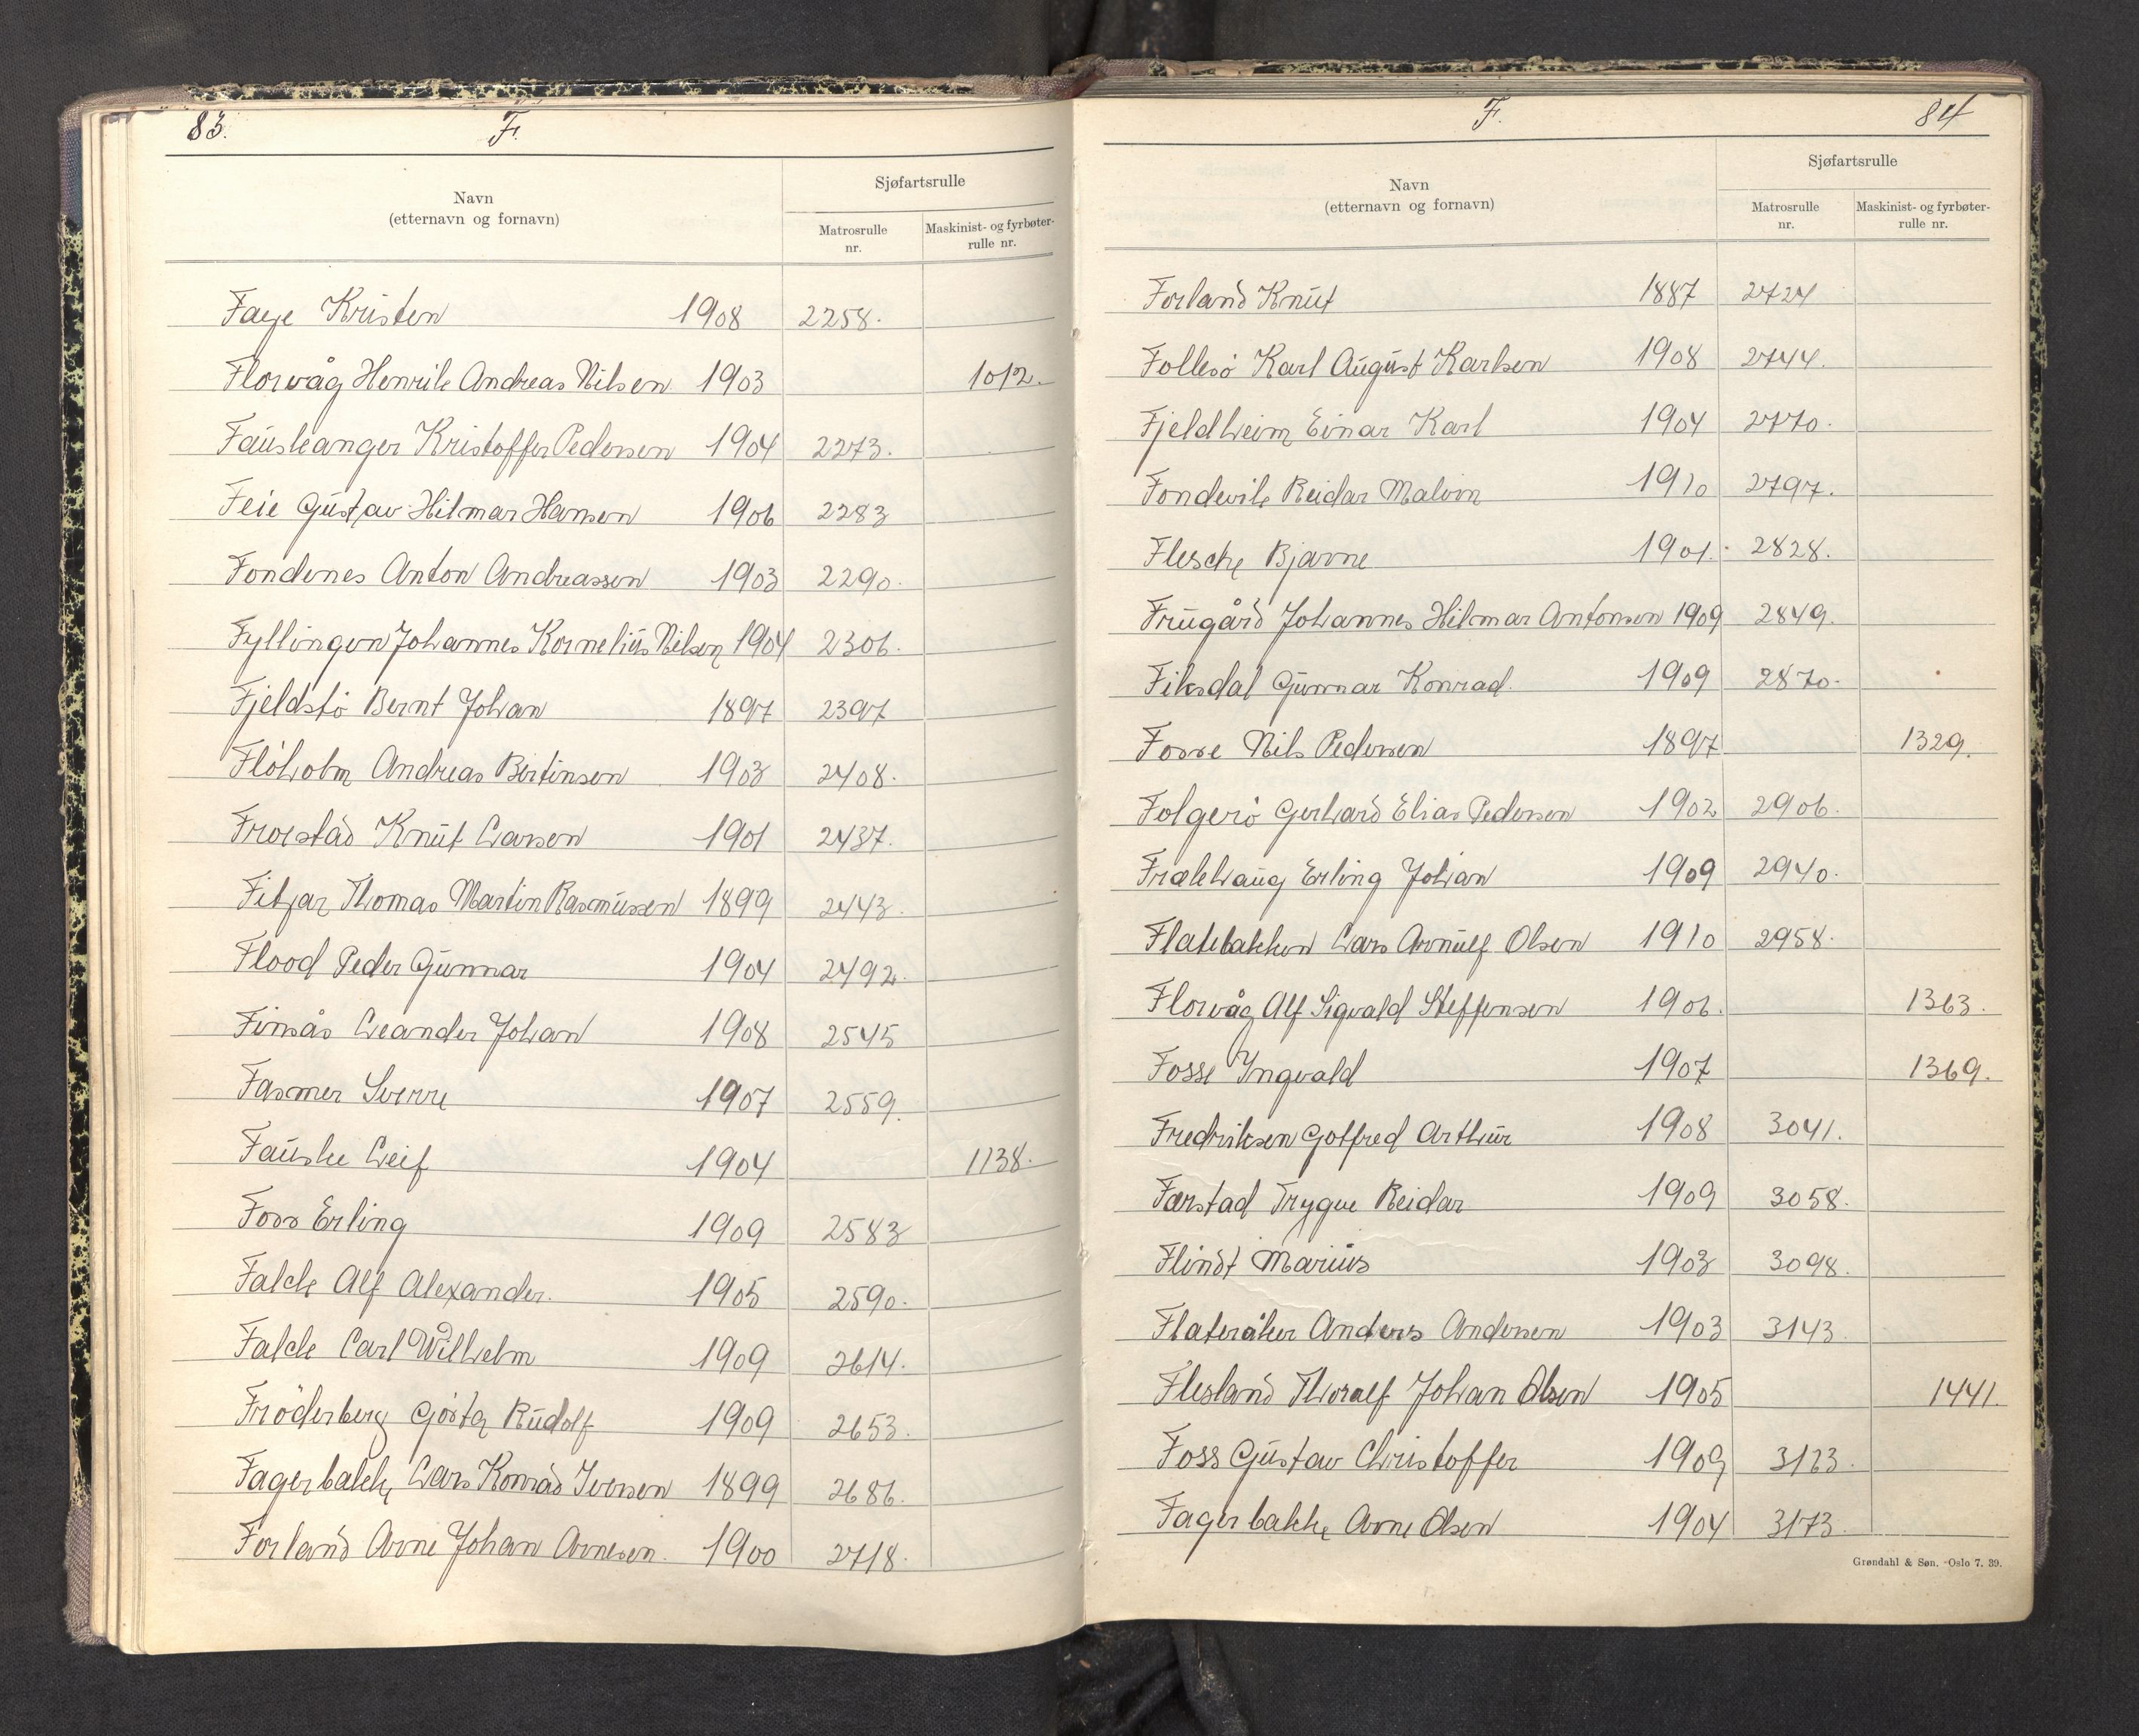 83. F.
Navn
(etternavn og fornavn)
Sjøfartsrulle
Matrosrulle
nr.
Maskinist- og fyrbøter-
rulle nr.
Faye Kristen 1908 2258.
Florvåg Henrik Andreas Nilsen 1903 1012.
Fauskanger Kristoffer Pedersen 1904 2273.
Feie Gustav Hilmar Hansen 1906 2283
Fondenes Anton Andreassen 1903 2290.
Fyllingen Johannes Kornelius Nilsen 1904 2306.
Fjeldstø Bernt Johan 1897 2397
Fløholm Andreas Bertinsen 1903 2408.
Frorstad Knut Larsen 1901 2437.
Fitjar Thomas Martin Rasmussen 1899 2443.
Flood Peder Gunnar 1904 2492.
Finsås Leander Johan 1908 2545
Fasmer Sverre 1907 2559.
Fauske Leif 1904 1138.
Foss Erling 1909 2583
Falck Alf Alexander. 1905 2590.
Falck Carl Wilhelm 1909 2614.
Fröderberg Gösta Rudolf 1909 2653.
Fagerbakk Lars Konrad Iversen 1899 2686.
Forland Arne Johan Arnesen. 1900 2718.
F. 84
Navn
(etternavn og fornavn)
Sjøfartsrulle
Matrosrulle
nr.
Maskinist- og fyrbøter-
rulle nr.
Forland Knut 1887 2724
Follesö Karl August Karlsen 1908 2744.
Fjeldheim Einar Karl 1904 2770.
Fondevik Reidar Malvin 1910 2797.
Flesche Bjarne 1901. 2828.
Frugård Johannes Hilmar Antonsen 1909 2849.
Fiksdal Gunnar Konrad. 1909 2870.
Fosse Nils Pedersen 1897 1329.
Folgerö Gerhard Elias Pedersen 1902 2906.
Frækhaug Erling Johan 1909 2940.
Flatebakken Lars Arnulf Olsen 1910 2958.
Florvåg Alf Sigvald Steffensen 1906. 1363.
Fosse Yngvald 1907 1369.
Fredriksen Gotfred Arthur 1908 3041.
Færstad Trygve Reidar 1909 3058.
Flindt Marius 1903 3098.
Flateråker Anders Andersen 1903 3143
Flesland Thoralf Johan Olsen 1905 1441.
Foss Gustav Christoffer 1909 3123.
Fagerbakke Arne Olsen 1904 3173.
Grøndahl & Søn. Oslo 7. 39.